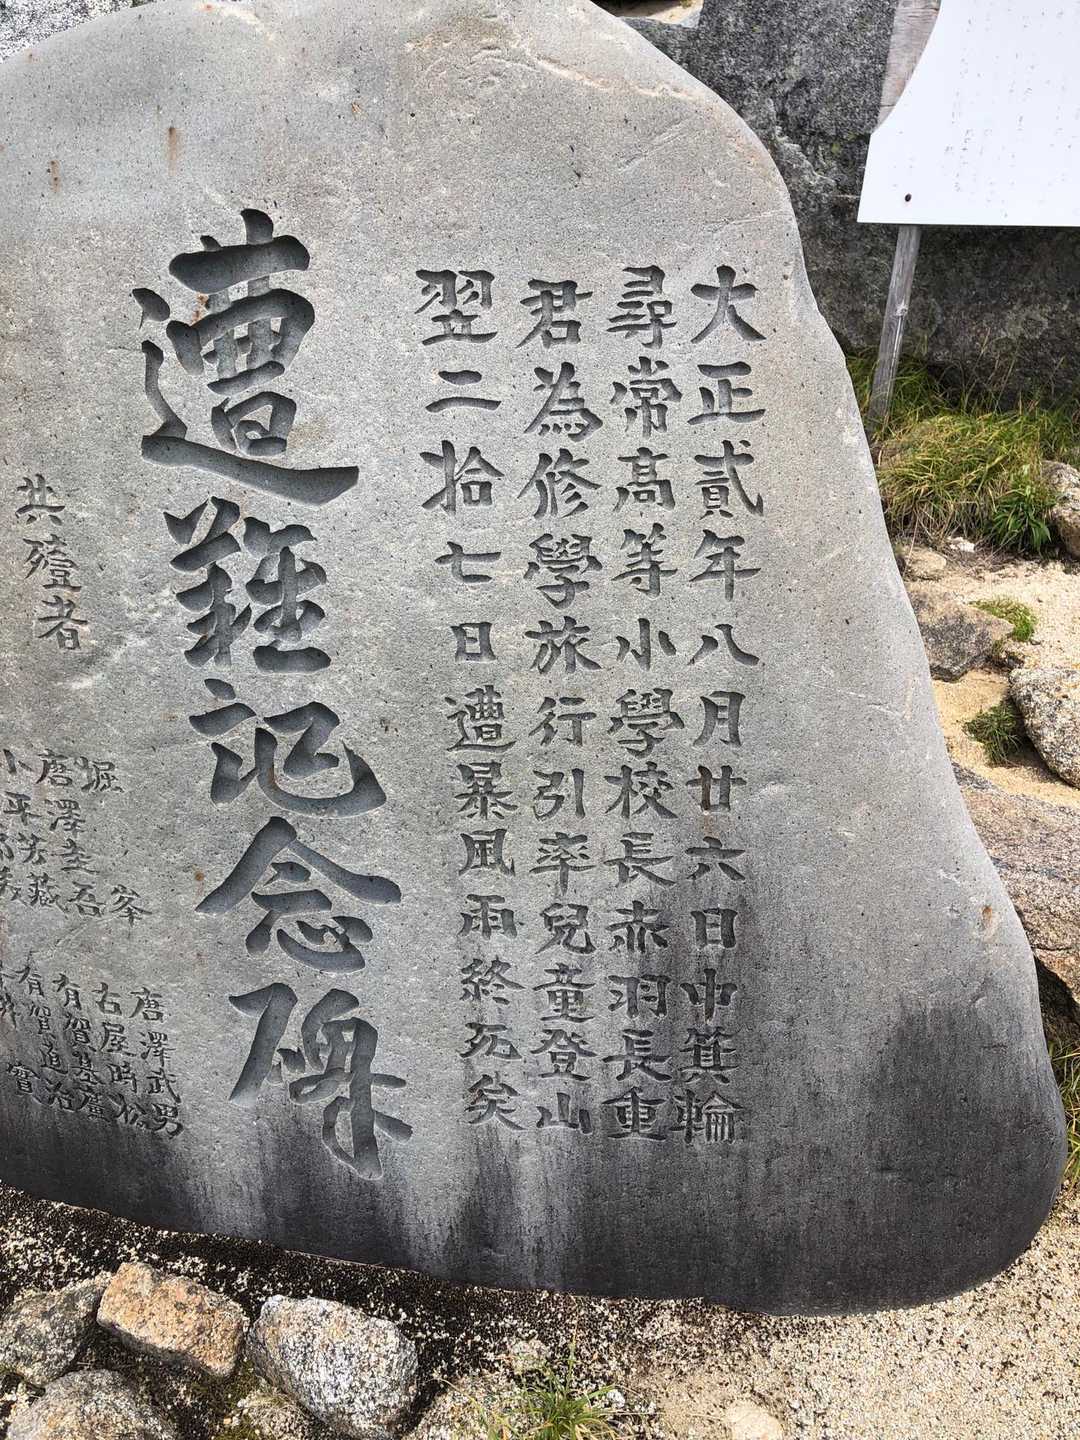 大正貳年八月廿六日中箕輪
尋常高等小學校長赤羽長重
君為修學旅行引率兒童登山
翌二拾七日遭暴風雨終死矣
遭難記念碑
共殪者
唐澤武男
堀 峯
古屋時松
唐澤圭吾
有賀基廣
小平芳藏
有賀直治